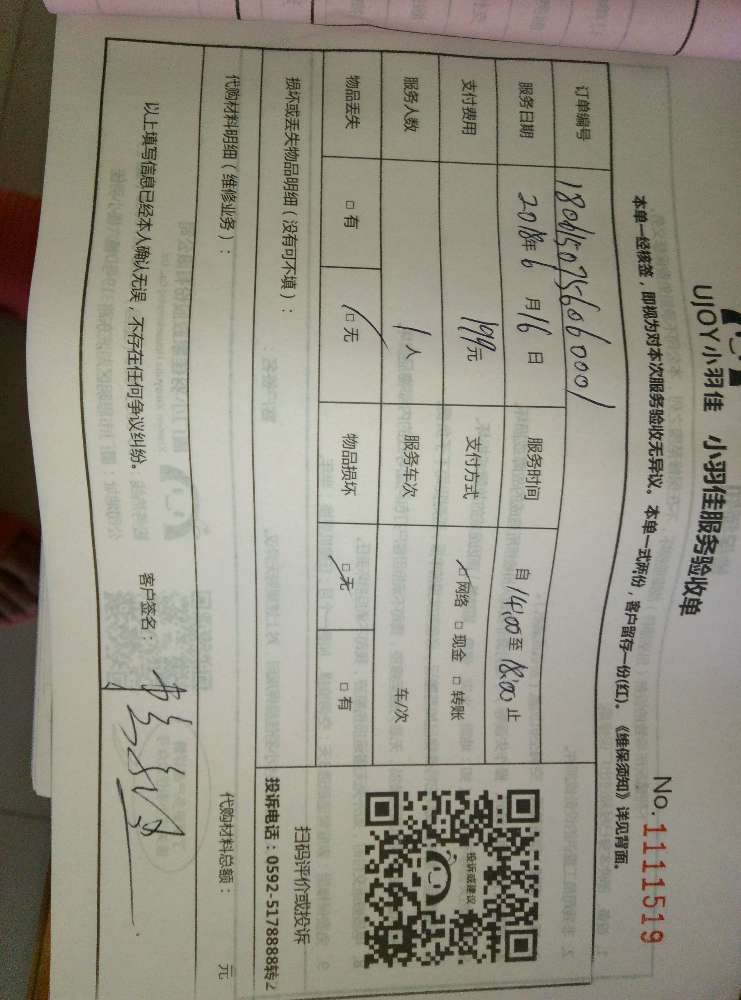 UJOY小羽佳 小羽佳服务验收单
No.1111519
本单一经核签，即视为对本次服务验收无异议。本单一式两份，客户留存一份(红)。《维保须知》详见背面。
订单编号 1806150756060001
服务日期 2018年6月16日 服务时间 自14:00至18:00止
支付费用 199元 支付方式 ☑网络 □现金 □转账
服务人数 1人 服务车次 车/次
物品丢失 □有 ☑无 物品损坏 ☑无 □有
投诉或建议
扫码评价或投诉
投诉电话：0592-5178888转2
损坏或丢失物品明细（没有可不填）：
代购材料明细（维修业务）： 代购材料总额： 元
以上填写信息已经本人确认无误，不存在任何争议纠纷。 客户签名：